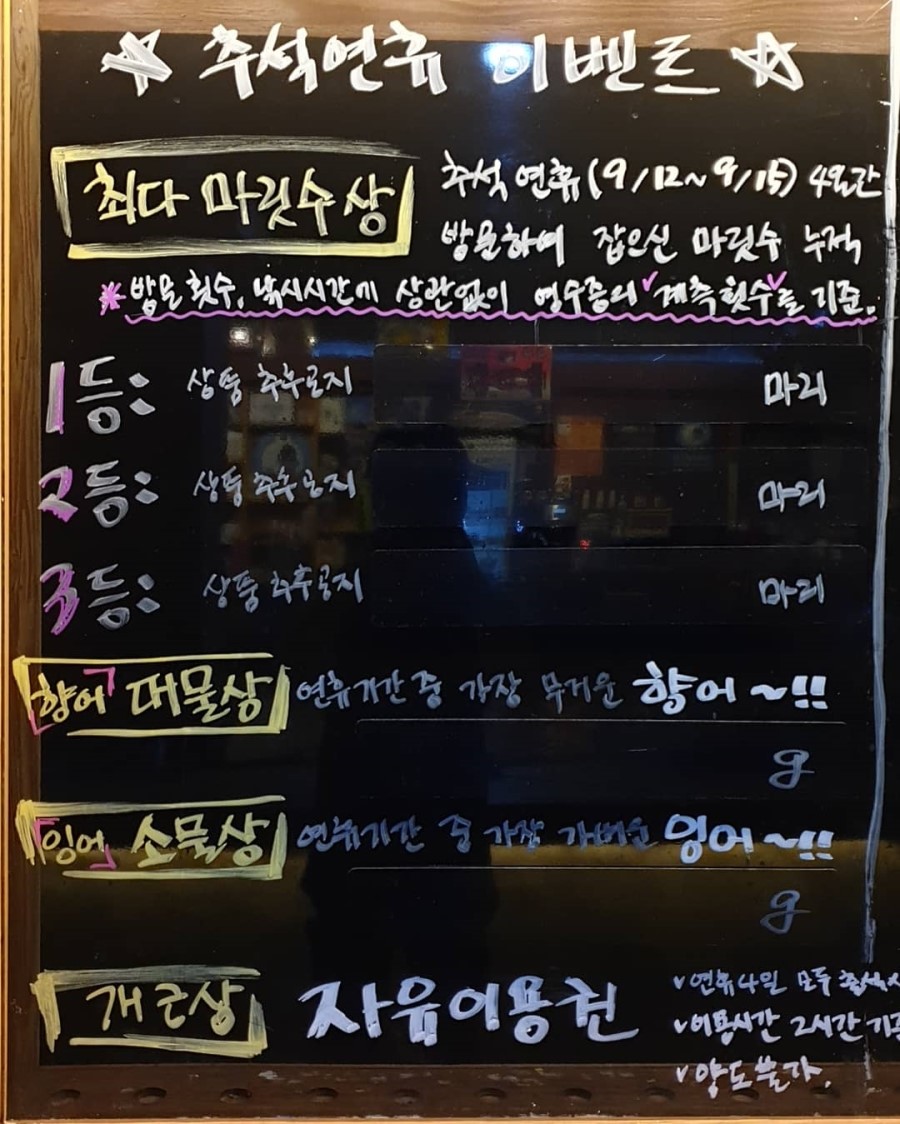 ☆ 추석연휴 이벤트 ☆
최다 마릿수상
추석 연휴(9/12~9/15) 4일간
방문하여 잡으신 마릿수 누적
* 방문횟수, 낚시시간에 상관없이 영수증의 계측횟수를 기준.
1등: 상품 추후공지 마리
2등: 상품 추후공지 마리
3등: 상품 추후공지 마리
"향어" 대물상 연휴기간 중 가장 무거운 향어~!!
g
"잉어" 소물상 연휴기간 중 가장 가벼운 잉어~!!
g
개근상 자유이용권
✓연휴4일 모두 출석시
✓이용시간 2시간
✓양도불가.